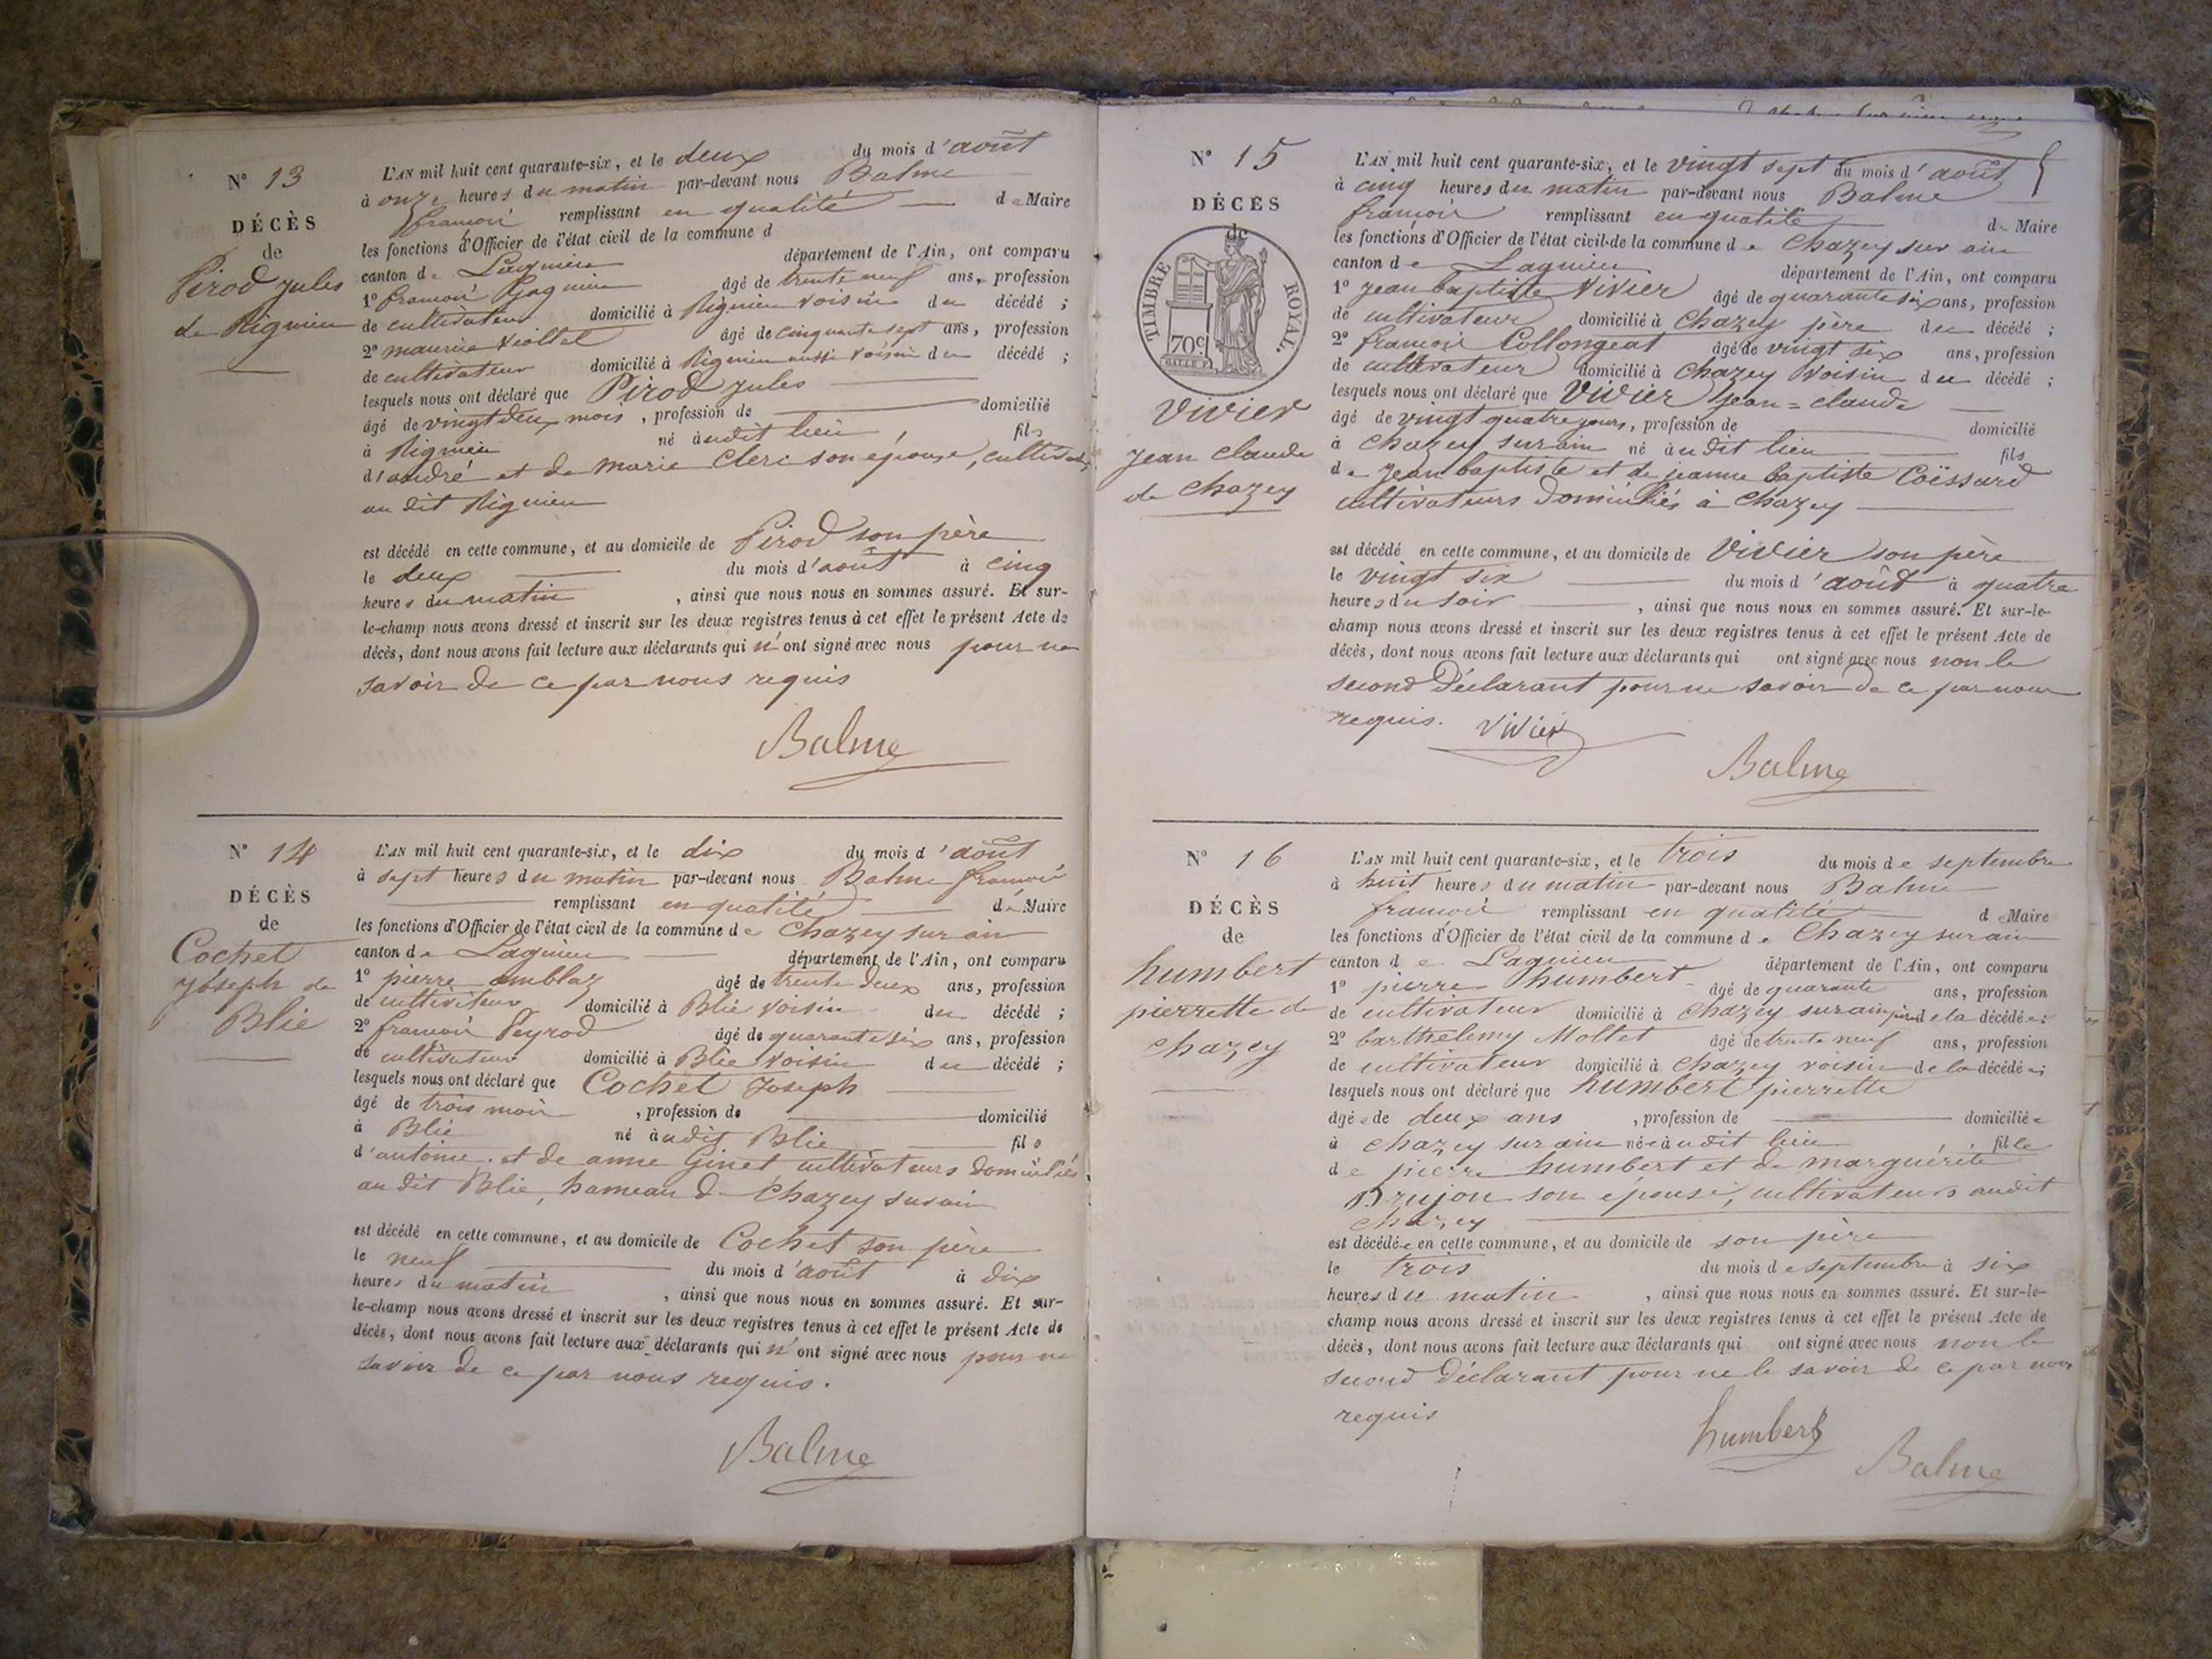 N° 13
DÉCÈS
de
Pirod jules
de Rignieu
L'AN mil huit cent quarante-six, et le deux du mois d'août
à onze heures du matin par-devant nous Balme
françois remplissant en qualité de Maire
les fonctions d'Officier de l'état civil de la commune d
canton de Lagnieu département de l'Ain, ont comparu
1° françois Gagnieu âgé de trente neuf ans, profession
de cultivateur domicilié à Rignieu voisin du décédé ;
2° maurice âgé de cinquante sept ans, profession
de cultivateur domicilié à Rignieu aussi voisin du décédé ;
lesquels nous ont déclaré que Pirod jules
âgé de vingt deux mois, profession de domicilié
à Rignieu né audit lieu fils
d'andré et de marie Clerc son épouse,
au dit Rignieu
est décédé en cette commune, et au domicile de Pirod son père
le deux du mois d'août à cinq
heures du matin, ainsi que nous nous en sommes assuré. Et sur-
le-champ nous avons dressé et inscrit sur les deux registres tenus à cet effet le présent Acte de
décès, dont nous avons fait lecture aux déclarants qui n'ont signé avec nous pour ne
savoir de ce par nous requis
Balme
N° 14
DÉCÈS
de
Cochet
joseph de
Blie
L'AN mil huit cent quarante-six, et le dix du mois d'août
à sept heures du matin par-devant nous Balme françois
remplissant en qualité de Maire
les fonctions d'Officier de l'état civil de la commune de Chazey sur ain
canton de Lagnieu département de l'Ain, ont comparu
1° pierre amblaz âgé de trente deux ans, profession
de cultivateur domicilié à Blie voisin du décédé ;
2° françois Peyrod âgé de quarante six ans, profession
de cultivateur domicilié à Blie voisin du décédé ;
lesquels nous ont déclaré que Cochet Joseph
âgé de trois mois, profession de domicilié
à Blie né audit Blie fils
d'antoine et de anne Ginet cultivateurs domiciliés
au dit Blie, hameau de Chazey sur ain
est décédé en cette commune, et au domicile de Cochet son père
le neuf du mois d'août à dix
heures du matin, ainsi que nous nous en sommes assuré. Et sur-
le-champ nous avons dressé et inscrit sur les deux registres tenus à cet effet le présent Acte de
décès, dont nous avons fait lecture aux déclarants qui n'ont signé avec nous pour ne
savoir de ce par nous requis.
Balme
N° 15
DÉCÈS
de
TIMBRE ROYAL.
70c
Vivier
jean claude
de Chazey
L'AN mil huit cent quarante-six, et le vingt sept du mois d'août
à cinq heures du matin par-devant nous Balme
françois remplissant en qualité de Maire
les fonctions d'Officier de l'état civil de la commune de Chazey sur ain
canton de Lagnieu département de l'Ain, ont comparu
1° jean baptiste Vivier âgé de quarante six ans, profession
de cultivateur domicilié à Chazey père du décédé ;
2° françois Collongeat âgé de vingt six ans, profession
de cultivateur domicilié à Chazey voisin du décédé ;
lesquels nous ont déclaré que Vivier jean=claude
âgé de vingt quatre jours, profession de domicilié
à Chazey sur ain né au dit lieu fils
de jean baptiste et de jeanne baptiste Coëssard
cultivateurs domiciliés à Chazey
est décédé en cette commune, et au domicile de Vivier son père
le vingt six du mois d'août à quatre
heures du soir, ainsi que nous nous en sommes assuré. Et sur-le-
champ nous avons dressé et inscrit sur les deux registres tenus à cet effet le présent Acte de
décès, dont nous avons fait lecture aux déclarants qui ont signé avec nous non le
second déclarant pour ne savoir de ce par nous
requis. Vivier
Balme
N° 16
DÉCÈS
de
humbert
pierrette de
chazey
L'AN mil huit cent quarante-six, et le trois du mois de septembre
à huit heures du matin par-devant nous Balme
françois remplissant en qualité de Maire
les fonctions d'Officier de l'état civil de la commune de Chazey sur ain
canton de Lagnieu département de l'Ain, ont comparu
1° pierre humbert âgé de quarante ans, profession
de cultivateur domicilié à Chazey sur ain père de la décédée ;
2° barthélemy Moltet âgé de trente neuf ans, profession
de cultivateur domicilié à Chazey voisin de la décédée ;
lesquels nous ont déclaré que humbert pierrette
âgée de deux ans, profession de domiciliée
à chazey sur ain née audit lieu fille
de pierre humbert et de marguérite
Drujon son épouse, cultivateurs audit
chazey
est décédée en cette commune, et au domicile de son père
le trois du mois de septembre à six
heures du matin, ainsi que nous nous en sommes assuré. Et sur-le-
champ nous avons dressé et inscrit sur les deux registres tenus à cet effet le présent Acte de
décès, dont nous avons fait lecture aux déclarants qui ont signé avec nous non le
second déclarant pour ne le savoir de ce par nous
requis
humbert
Balme